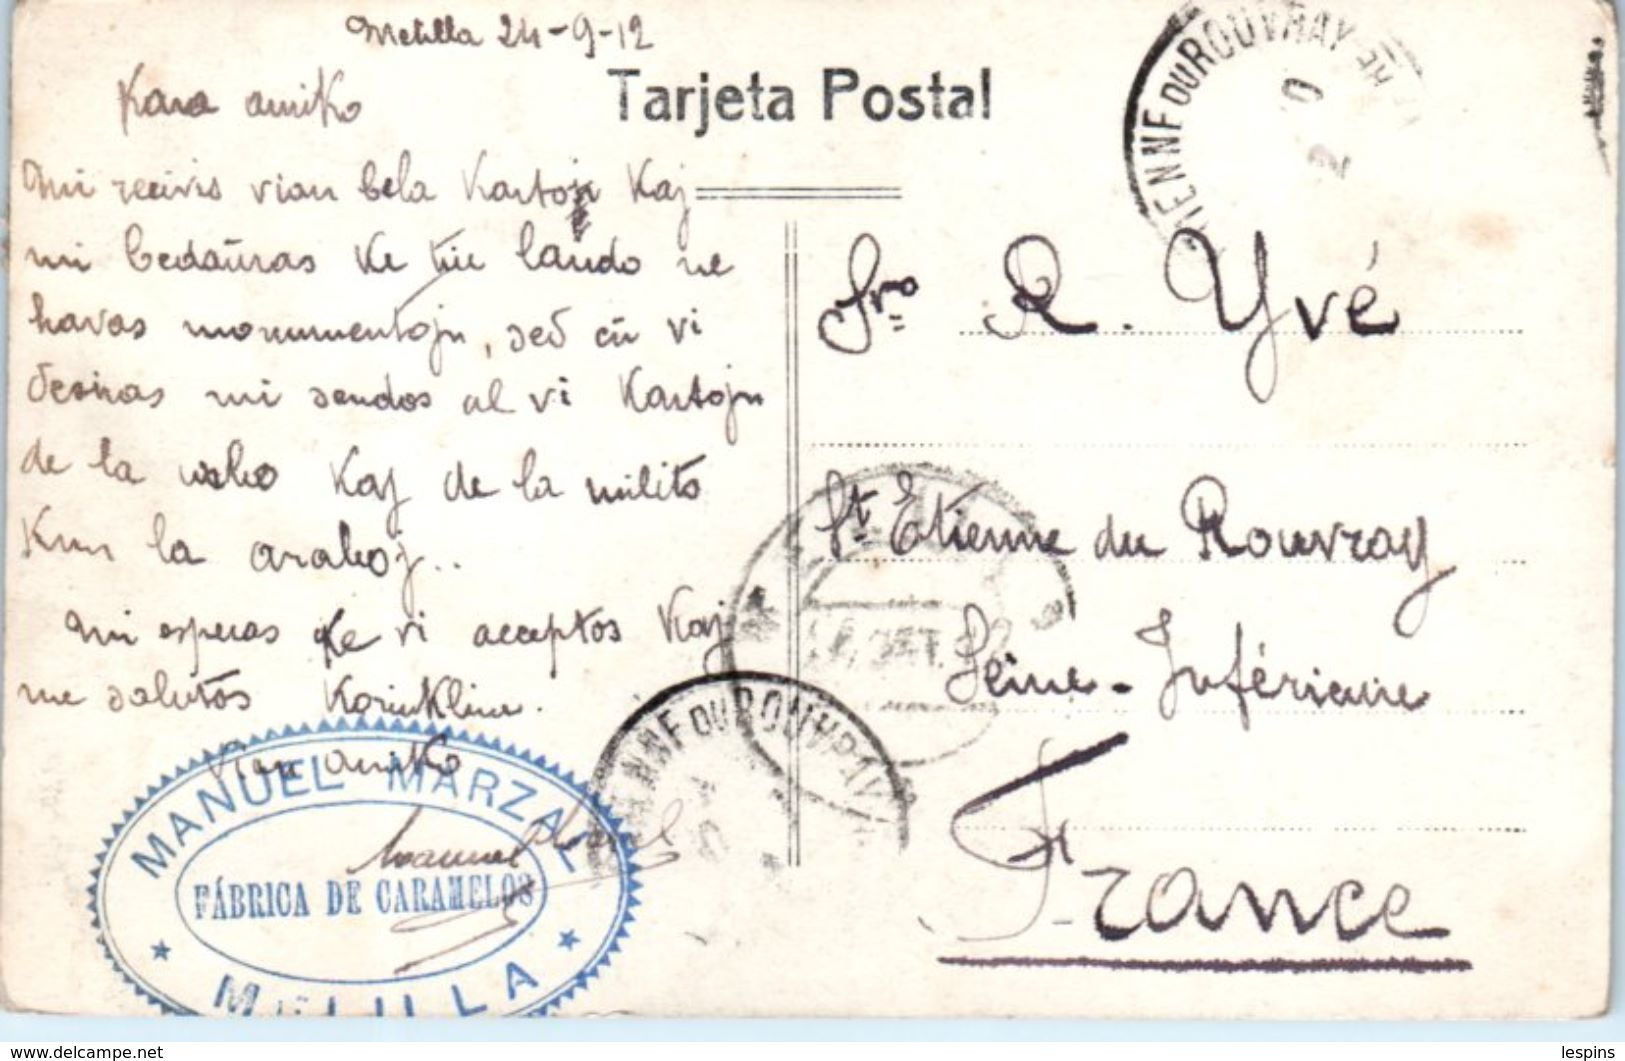 Melilla 24-9-12
Kara amiko
Tarjeta Postal
mi recivis vian bela Kartojn Kaj
mi bedaŭras Ke tiu lando ne
havas monumentojn, sed ĉu vi
desiras mi sendos al vi Kartojn
de la urbo Kaj de la milito
Kun la araboj..
mi esperas Ke vi acceptos Kaj
me salutos Korinklina.
Vian amiko
Manuel
MANUEL MARZAL
FÁBRICA DE CARAMELOS
MELILLA
Sro R. Yvé
St Etienne du Rouvray
Seine-Inférieure
France
ENNE DU ROUVRAY
NNE DU ROUVRAY
lespins